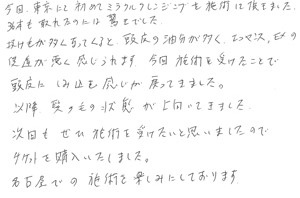 今回、東京にて初めてミラクルクレンジングを施術して頂きました。
3本も取れたのには驚きでした。
抜け毛が多くなってくると、頭皮の油分が多く、エッセンス、EXの
浸透が悪く感じられます。今回施術を受けたことで
頭皮にしみ込む感じが戻ってきました。
以降、髪の毛の状態が上向いてきました。
次回もぜひ施術を受けたいと思いましたので
チケットを購入いたしました。
名古屋での施術を楽しみにしております。